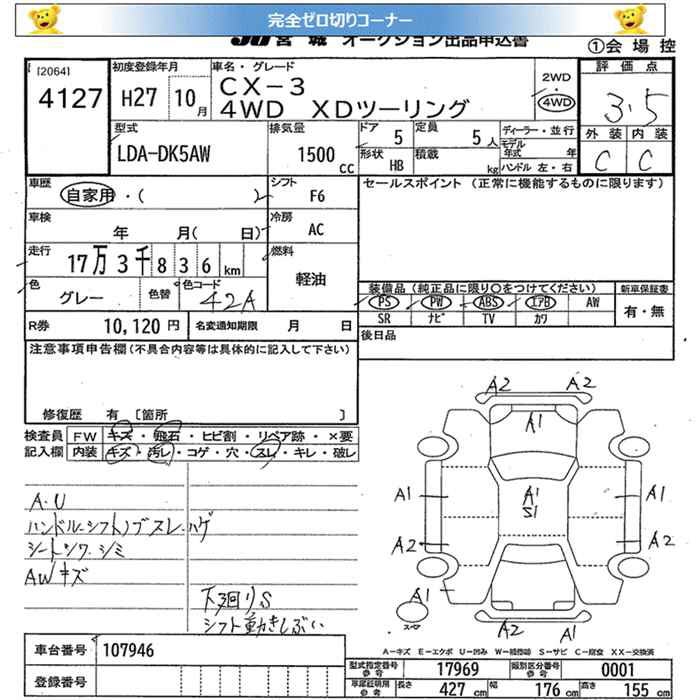 完全ゼロ切りコーナー
JU 宮城 オークション出品申込書
①会場控
[2064]
4127
初度登録年月
H27 10月
車名・グレード
CX-3
4WD XDツーリング
2WD
・
4WD
評価点
3.5
外装 内装
C C
型式
LDA-DK5AW
排気量
1500cc
ドア 5
定員 5人
形状 HB
積載 kg
ディーラー・並行
モデル年式 年
ハンドル 左・右
車歴 自家用・( )
シフト F6
車検 年 月( 日)
冷房 AC
走行 17万3千836km
燃料 軽油
色 グレー 色替 色コード 42A
R券 10,120円 名変通知期限 月 日
セールスポイント(正常に機能するものに限ります)
装備品(純正品に限り〇をつけてください)
新車保証書
PS PW ABS エアB AW
有・無
SR ナビ TV カワ
後日品
注意事項申告欄(不具合内容等は具体的に記入して下さい)
修復歴 有 [箇所 ]
検査員記入欄
FW キズ・飛石・ヒビ割・リペア跡・×要
内装 キズ・汚レ・コゲ・穴・スレ・キレ・破レ
A・U
ハンドル・シフトノブスレ・ハゲ
シートシワ・シミ
AWキズ
下廻りS
シフト動きしぶい
A2 A2
A1
A1 A1 A1
S1
A2 A2
A1
スペア
A2 A1
A-キズ E-エクボ U-凹み W-補修跡 S-サビ C-腐食 XX-交換済
車台番号 107946
登録番号
型式指定番号 参考 17969 類別区分番号 参考 0001
車庫証明用 参考 長さ 427cm 幅 176cm 高さ 155cm